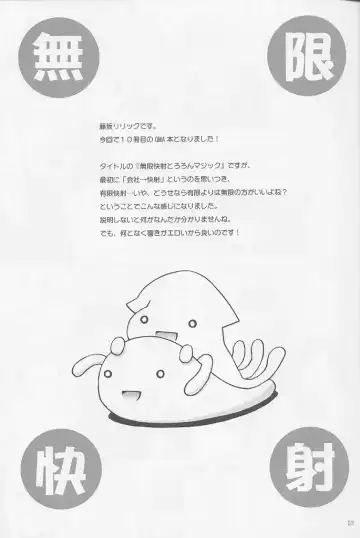 無
限
藤坂リリックです。
今回で10冊目のQMA本となりました！
タイトルの『無限快射とろろんマジック』ですが、
最初に「会社→快射」というのを思いつき、
有限快射…いや、どうせなら有限よりは無限の方がいいよね？
ということでこんな感じになりました。
説明しないと何がなんだか分かりませんね。
でも、何となく響きがエロいから良いのです！
快
射